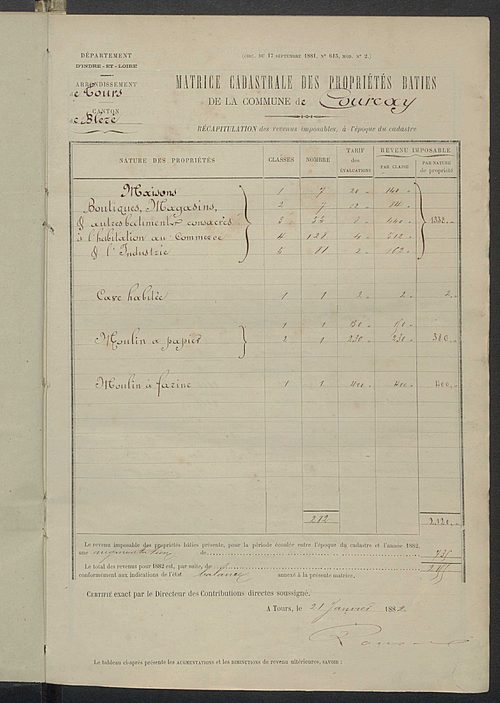 DÉPARTEMENT
D'INDRE-ET-LOIRE
ARRONDISSEMENT
de Tours
CANTON
de Bléré
(CIRC. DU 17 SEPTEMBRE 1881, N° 613, MOD. N° 2.)
MATRICE CADASTRALE DES PROPRIÉTÉS BATIES
DE LA COMMUNE de Courçay
RÉCAPITULATION des revenus imposables, à l'époque du cadastre
NATURE DES PROPRIÉTÉS CLASSES NOMBRE TARIF des ÉVALUATIONS REVENU IMPOSABLE PAR CLASSE PAR NATURE de propriété
Maisons 1 7 20 140
Boutiques, Magasins, 2 7 12 84
& autres batiments consacrés 3 8
à l'habitation au Commerce 4 128 4 512
& l'Industrie 5 2
Cave habitée 1 1 2 2 2
1 1 150 150
Moulin à papier 2 1 230 230 380
Moulin à farine 1 1 400 400 400
212
Le revenu imposable des propriétés bâties présente, pour la période écoulée entre l'époque du cadastre et l'année 1882,
une augmentation de 735
Le total des revenus pour 1882 est, par suite, de
conformément aux indications de l'état balancé annexé à la présente matrice.
CERTIFIÉ exact par le Directeur des Contributions directes soussigné.
A TOURS, le 21 Janvier 1882
Le tableau ci-après présente les AUGMENTATIONS et les DIMINUTIONS de revenu ultérieures, SAVOIR :